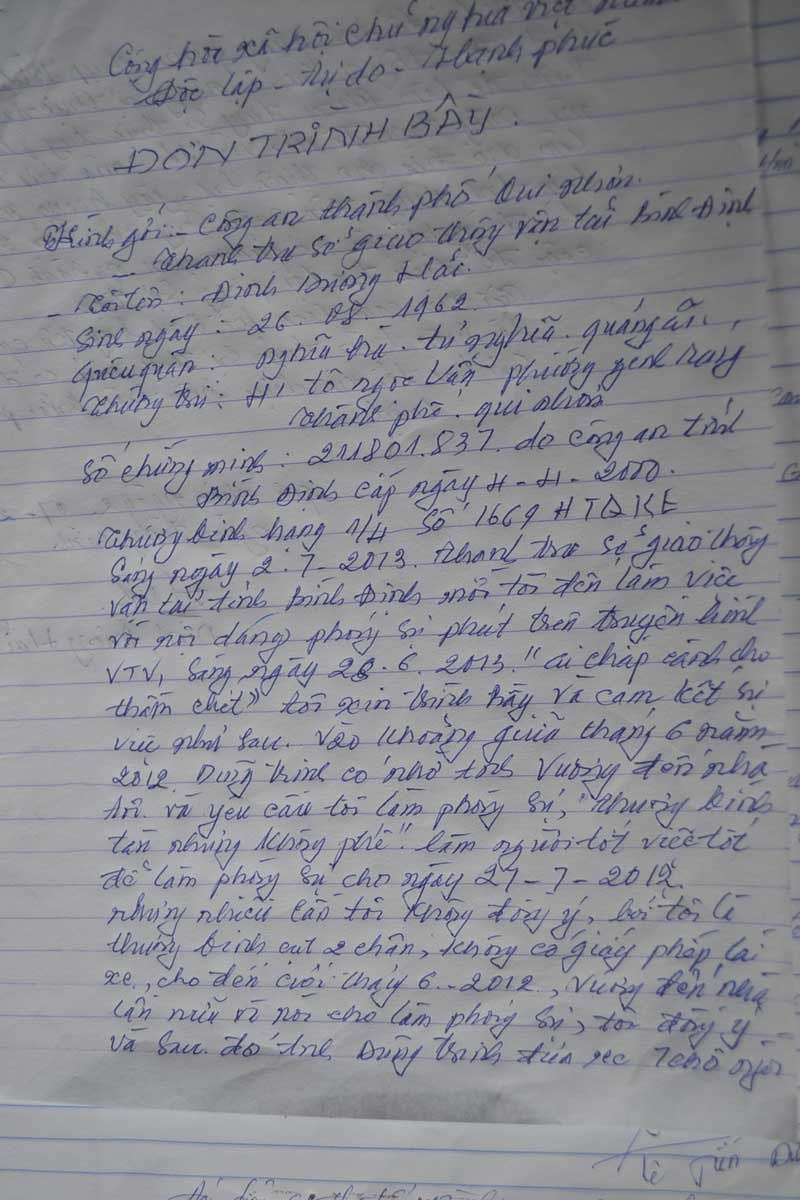 Cộng hòa xã hội chủ nghĩa việt nam
Độc lập - tự do - Hạnh phúc
ĐƠN TRÌNH BẦY.
Kính gởi - Công an thành phố Qui Nhơn.
- Thanh tra sở giao thông vận tải Bình Định
- Tôi tên : Đinh Dương Hải.
Sinh ngày : 26. 08. 1962.
Quê quán : nghĩa hà - tư nghĩa. quảng ngãi.
Thường trú : tô ngọc Vân phường
thành phố. qui nhơn
Số chứng minh : 211801.837. do công an tỉnh
Bình Định cấp ngày 4 - 4 - 2000.
Thương binh hạng 1/4 Số 1669
Sáng ngày 2. 7 - 2013. thanh tra sở giao thông
vận tải tỉnh Bình Định mời tôi đến làm việc
với nôi dung phóng sự phát trên truyền hình
VTV, Sang ngày 28. 6. 2013. "ai chấp cánh cho
thầm chết" tôi xin trình bầy và cam kết sự
việc như sau. vào khoảng giữa tháng 6 năm
2012. Dũng trinh có nhờ Vương đến nhà
tôi. và yêu cầu tôi làm phóng sự, "thương binh
tàn nhưng không phế". làm người tốt việc tốt
để làm phóng sự cho ngày 27 - 7 - 2012.
nhưng nhiều lần tôi không đồng ý, bởi tôi là
thương binh cụt 2 chân, không có giấy phép lái
xe, cho đến cuối tháy 6 - 2012, Vương đến nhà
lần nữa và nói cho làm phóng sự, tôi đồng ý
và sau. đó Dũng trinh đưa xe 7 chỗ
Lê Tiến